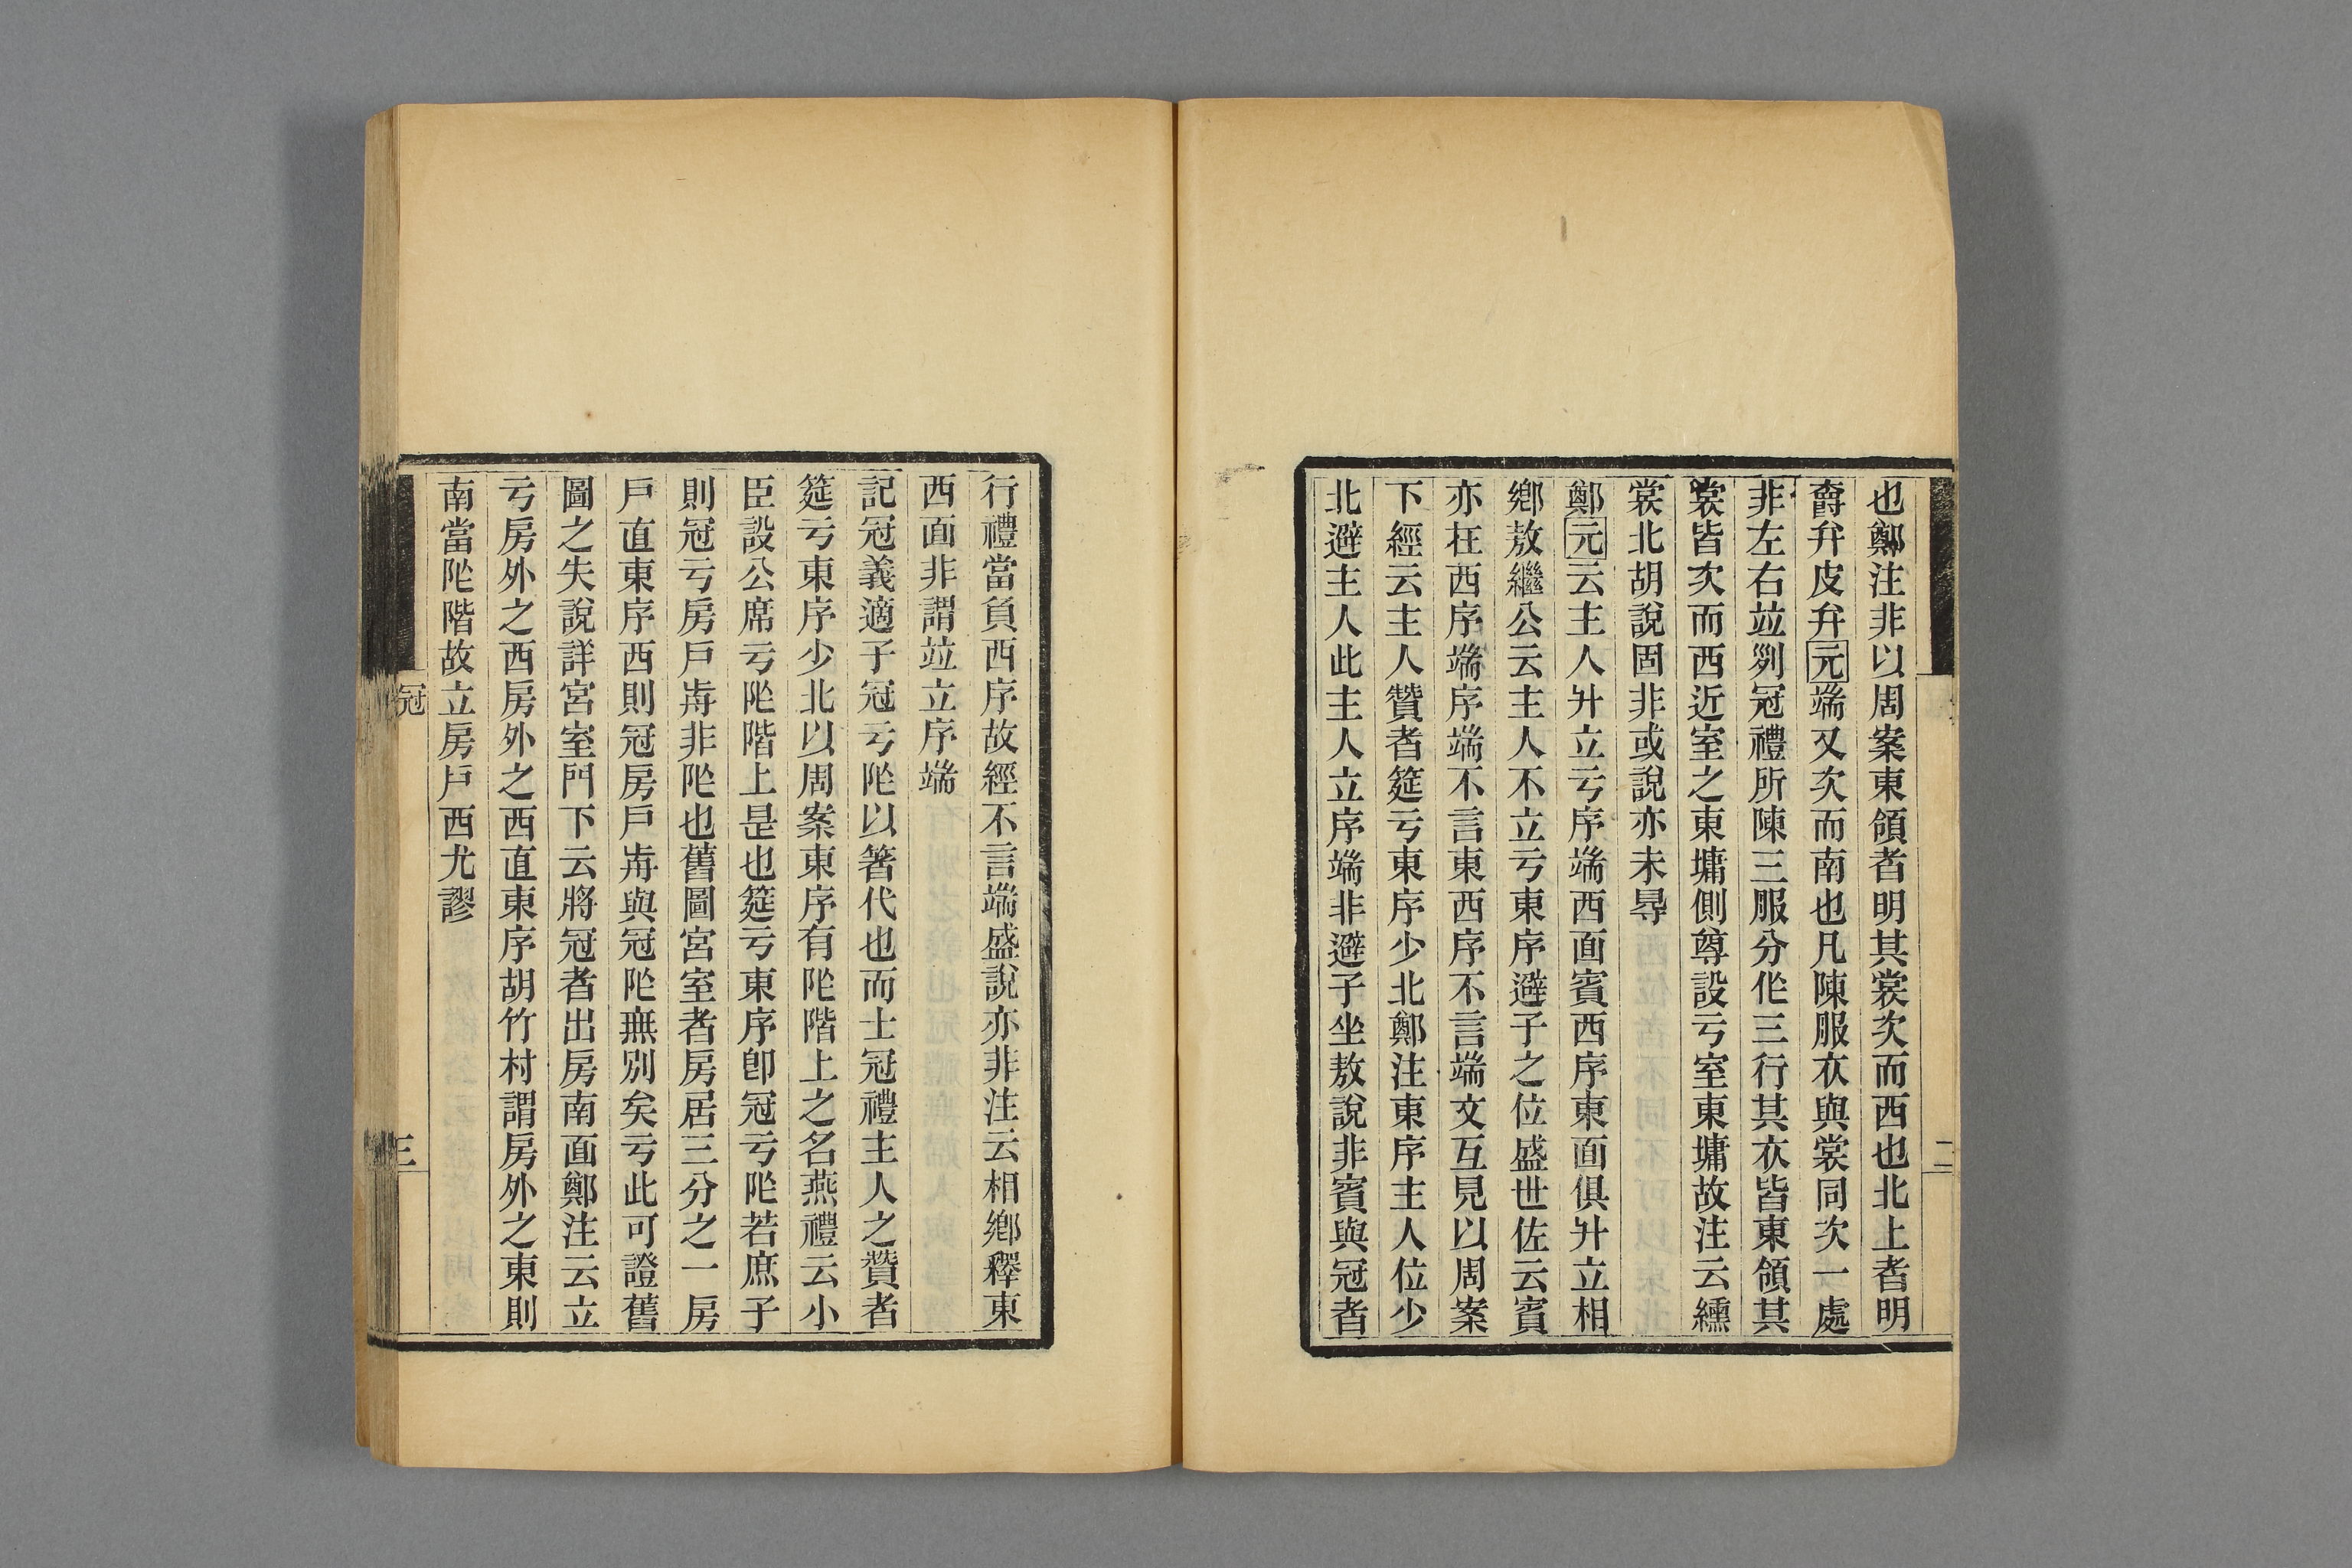 也鄭注非以周案東領者明其裳次而西也北上者明
爵弁皮弁元端又次而南也凡陳服衣與裳同次一處
非左右竝列冠禮所陳三服分作三行其衣皆東領其
裳皆次而西近室之東墉側尊設亏室東墉故注云纁
裳北胡說固非或說亦未㝷
鄭元云主人升立亏序端西面賓西序東面俱升立相
鄉敖繼公云主人不立亏東序避子之位盛世佐云賓
亦在西序端序端不言東西序不言端文互見以周案
下經云主人贊者筵亏東序少北鄭注東序主人位少
北避主人此主人立序端非避子坐敖說非賓與冠者
二
行禮當負西序故經不言端盛說亦非注云相鄉釋東
西面非謂竝立序端
記冠義適子冠亏阼以箸代也而士冠禮主人之贊者
筵亏東序少北以周案東序有阼階上之名燕禮云小
臣設公席亏阼階上是也筵亏東序卽冠亏阼若庶子
則冠亏房戶歬非阼也舊圖宮室者房居三分之一房
戶直東序西則冠房戶歬與冠阼無別矣亏此可證舊
圖之失說詳宮室門下云將冠者出房南面鄭注云立
亏房外之西房外之西直東序胡竹村謂房外之東則
南當阼階故立房戶西尤謬
冠
三